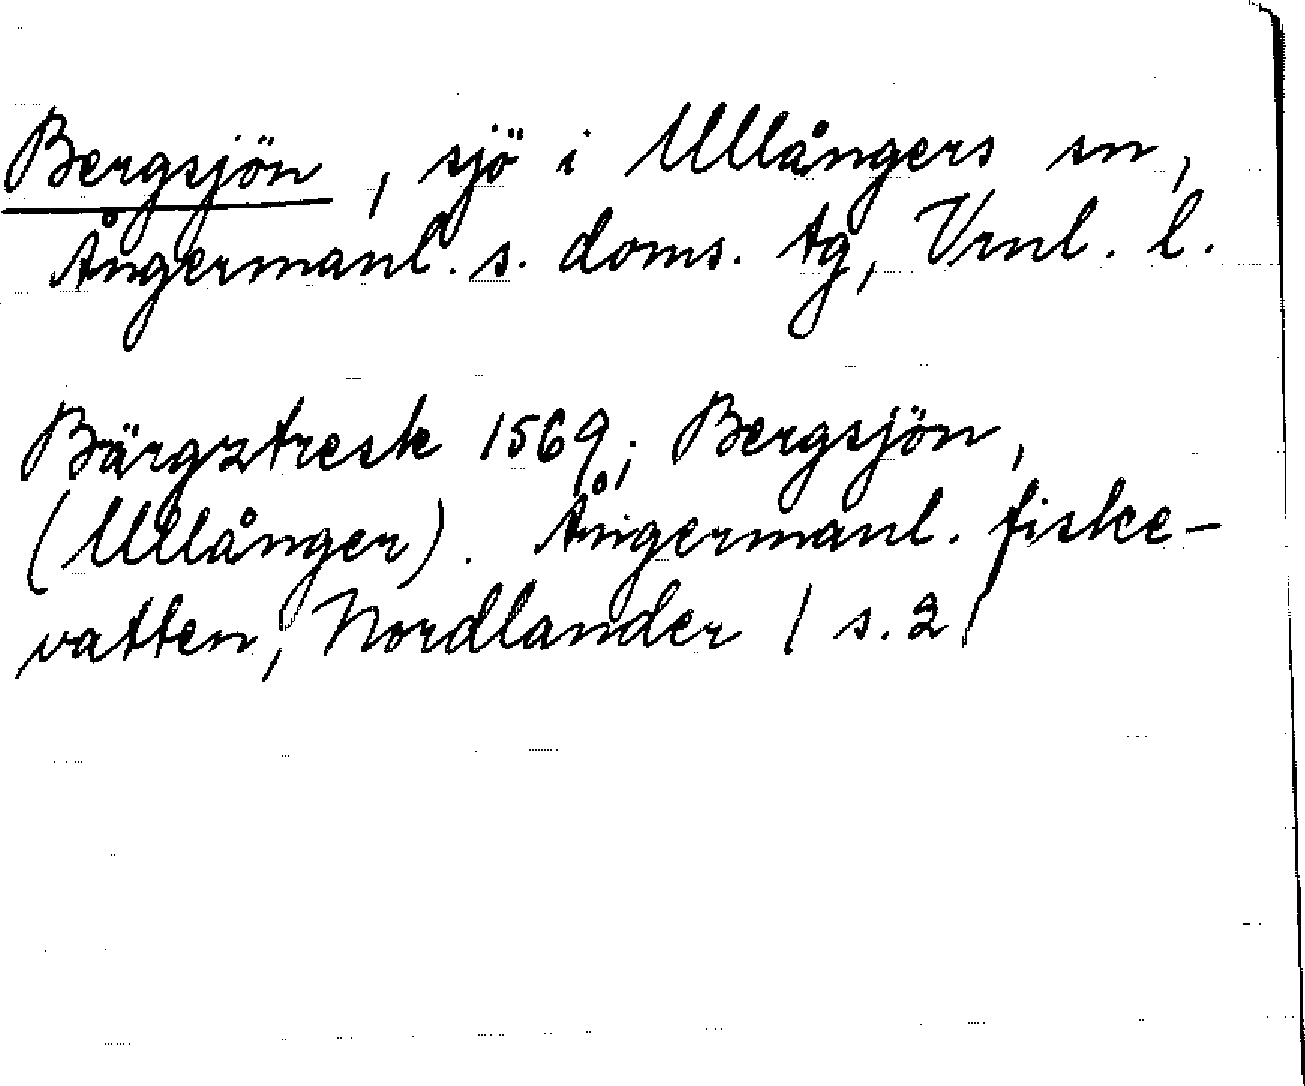 Bergsjön, sjö i Ullångers sn,
Ångermanl. s. doms. tg, Vrnl. l.
Bärgztresk 1569; Bergsjön,
(Ullånger). Ångermanl. fiske-
vatten, Nordlander / s. 2/